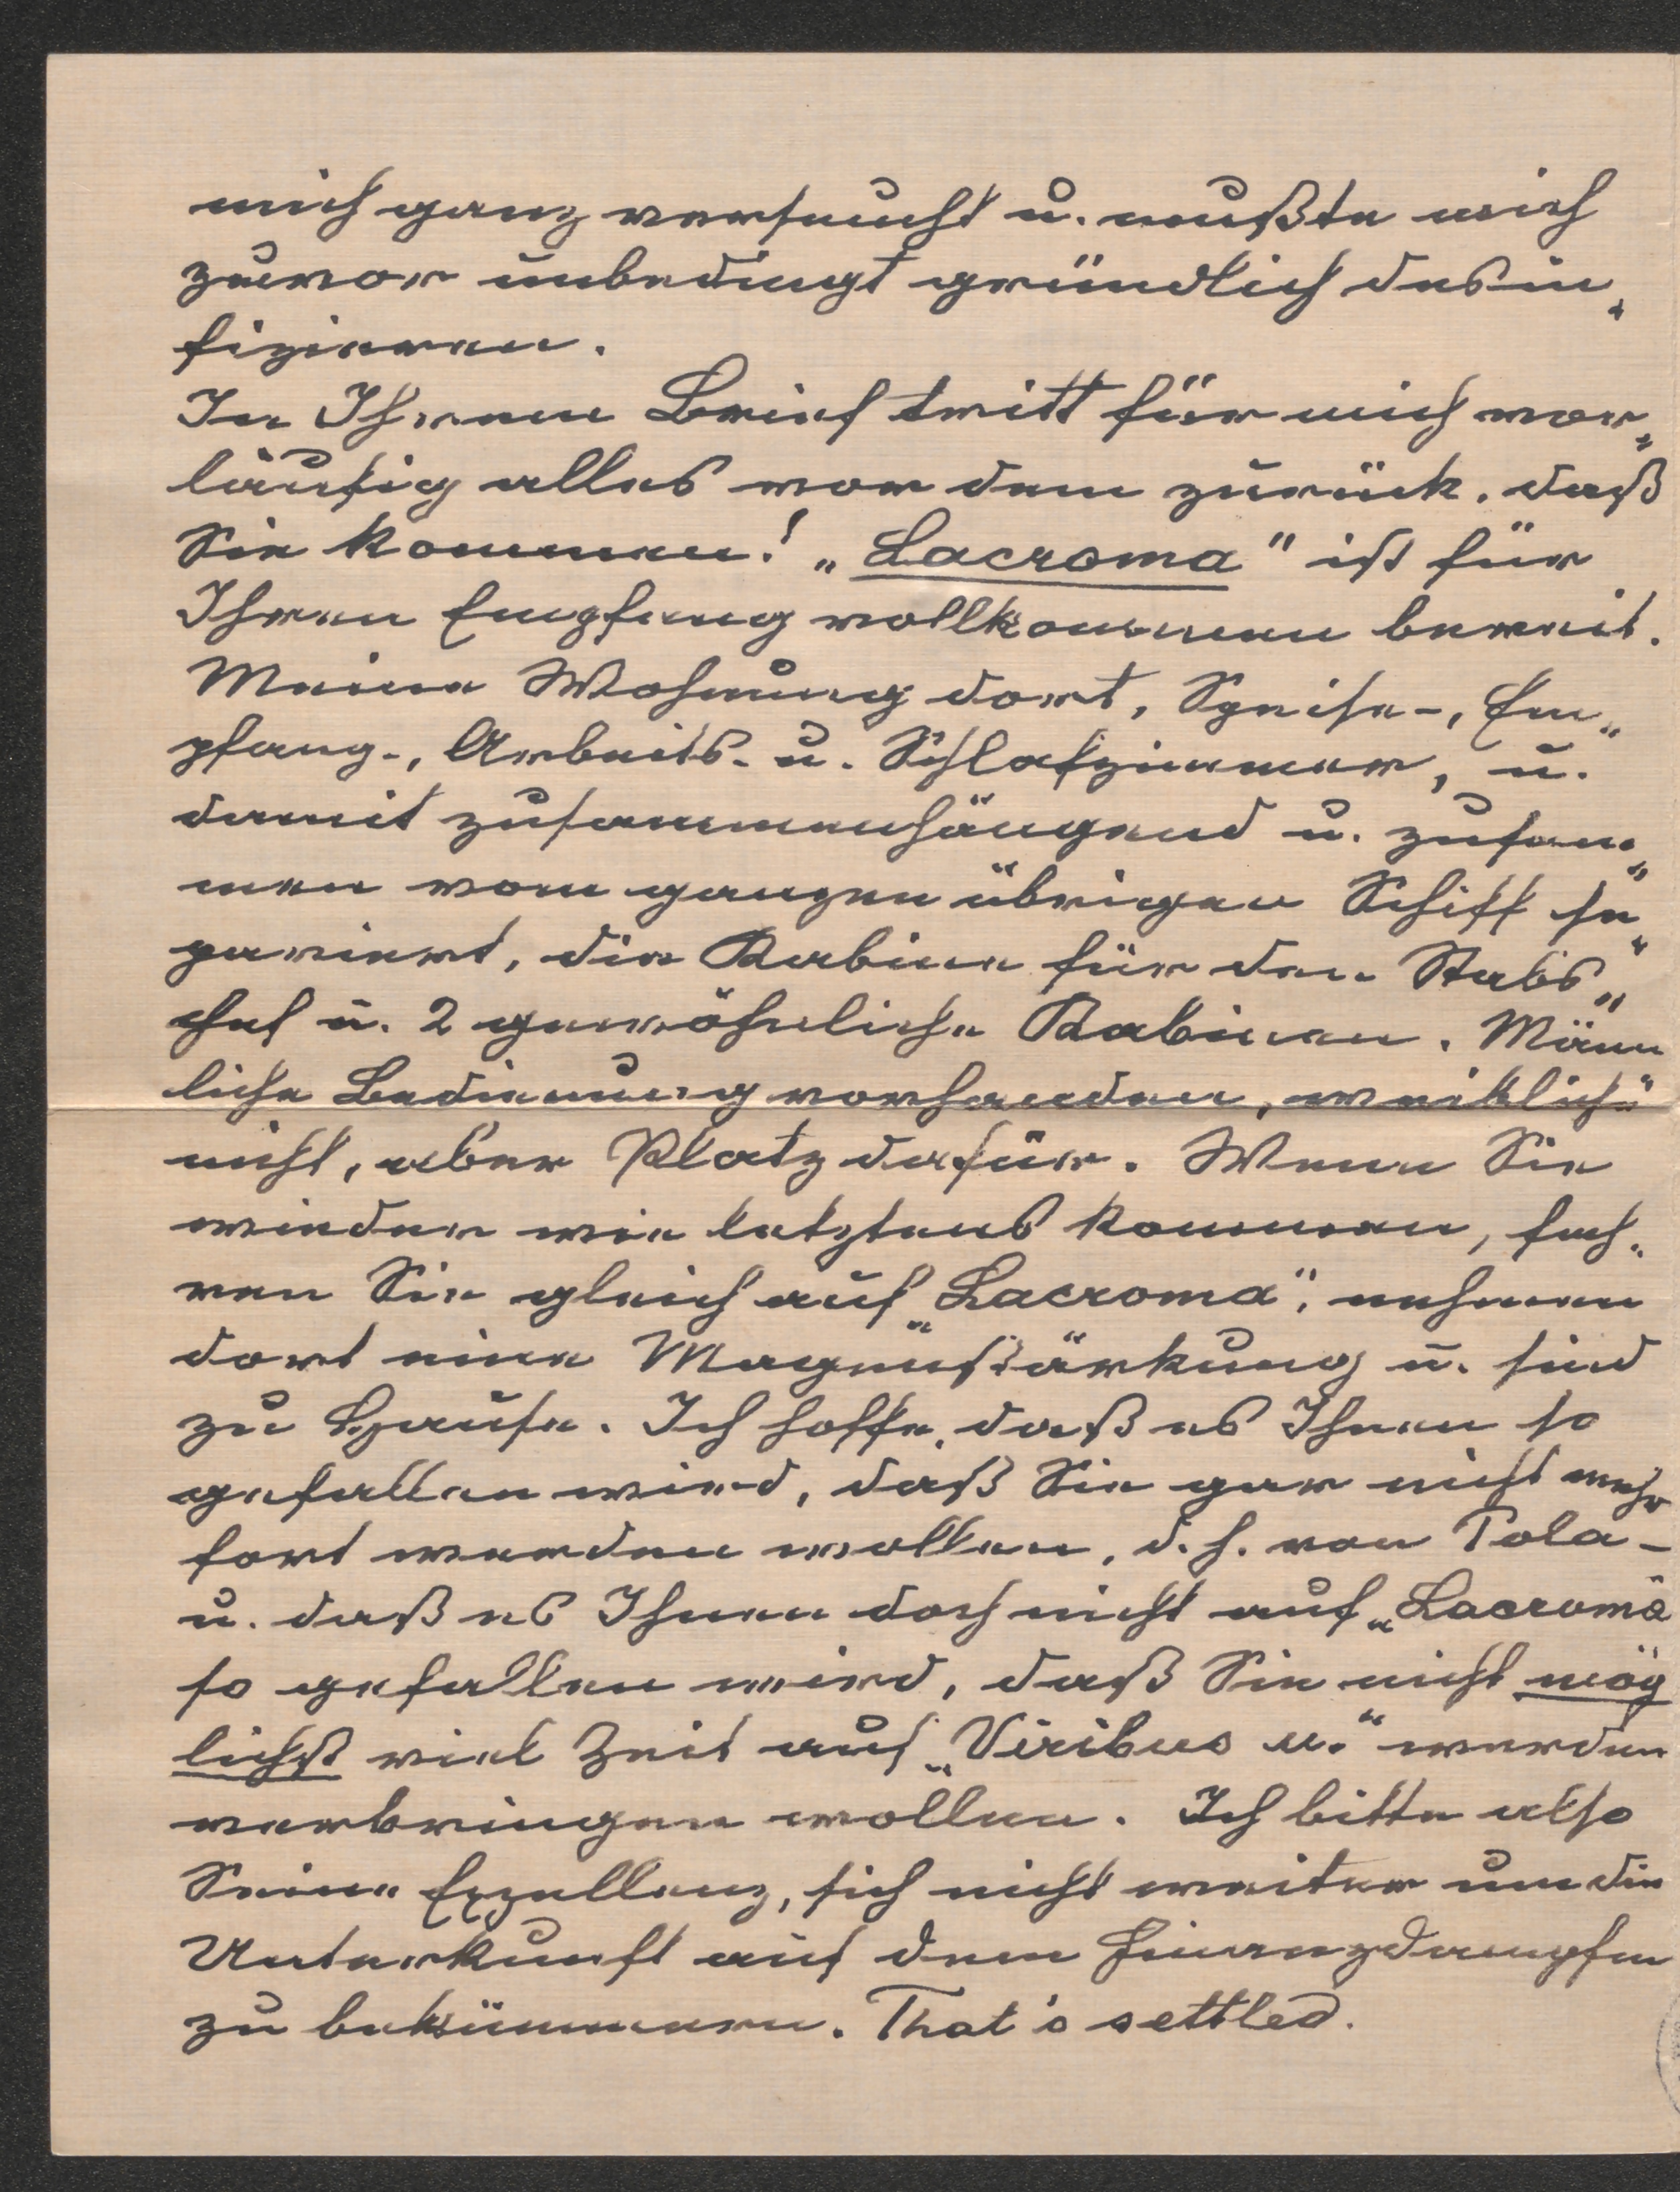 mich ganz verseucht u. mußte mich
zuvor unbedingt gründlich desin„
fizieren.
In Ihrem Brief tritt für mich vor„
läufig alles vor dem zurück, daß
Sie kommen! „Lacroma" ist für
Ihren Empfang vollkommen bereit.
Meine Wohnung dort, Speise-, Em„
pfang-, Arbeits- u. Schlafzimmer, u.
damit zusammenhängend u. zusam„
men vom ganzen übrigen Schiff se„
pariert, die Kabine für den Stabs„
chef u. 2 gewöhnliche Kabinen. Männ„
liche Bedienung vorhanden, weibliche
nicht, aber Platz dafür. Wenn Sie
wieder wie letztens kommen, fah„
ren Sie gleich auf „Lacroma", nehmen
dort eine Magenstärkung u. sind
zu Hause. Ich hoffe, daß es Ihnen so
gefallen wird, daß Sie gar nicht mehr
fort werden wollen, d. h. von Pola –
u. daß es Ihnen doch nicht auf „Lacroma"
so gefallen wird, daß Sie nicht mög
lichst viel Zeit auf „Viribus u." werden
verbringen wollen. Ich bitte also
Seine Exzellenz, sich nicht weiter um die
Unterkunft auf dem Finanzdampfer
zu bekümmern. That's settled.